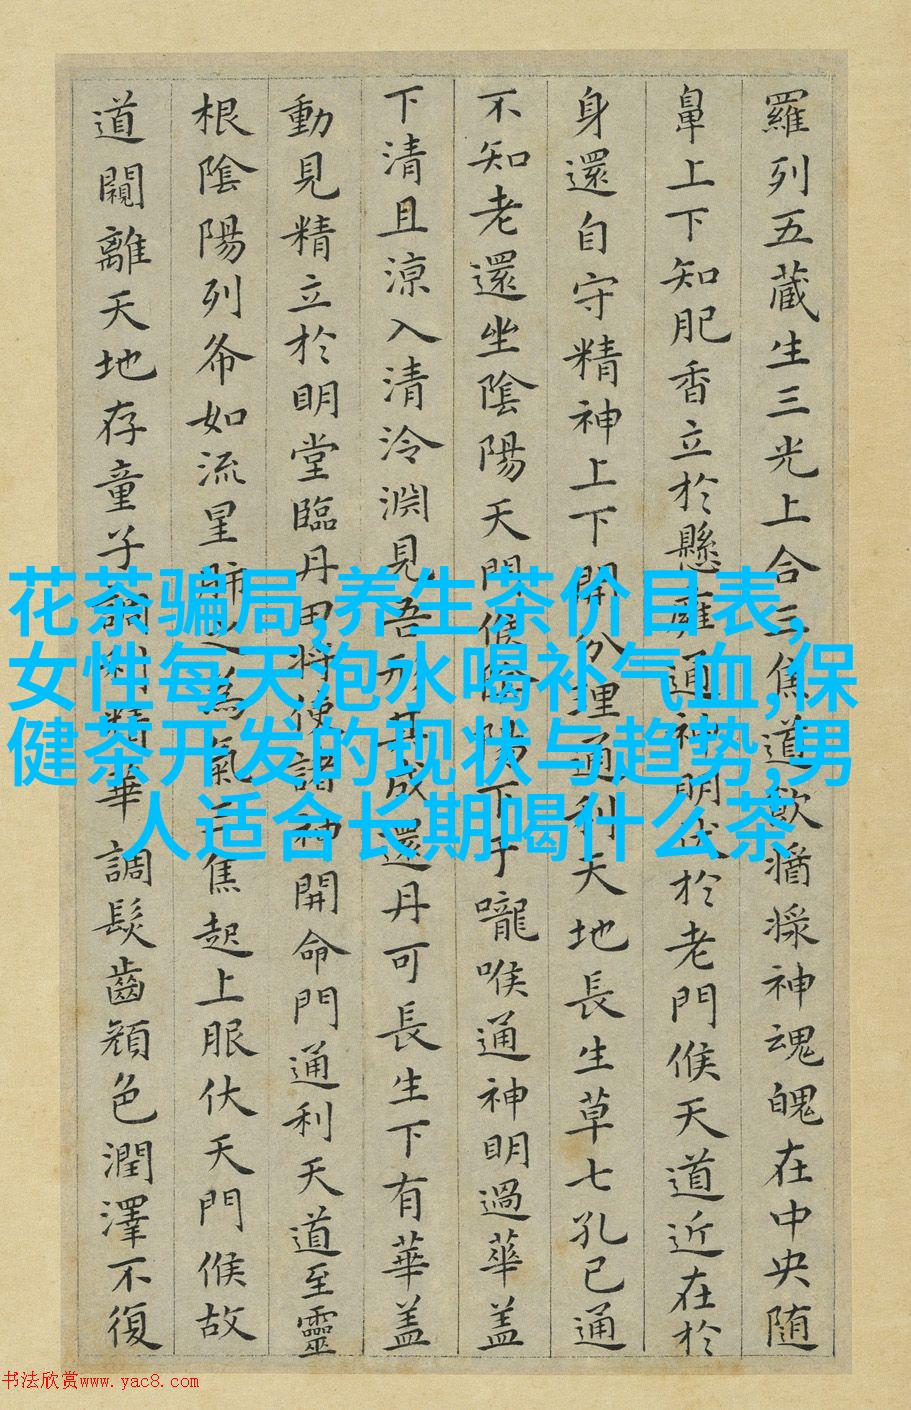 羅列五藏生三光上合三焦道飲醬漿神魂魄在中央随
鼻上下知肥香立於懸雍通神明伏於老門候天道近在於
身還自守精神上下開分理通利天地長生草七孔已通
不知老還坐陰陽天門候陰陽下于嚨喉通神明過華盖
下清且涼入清泠淵見吾形其成還丹可長生下有華盖
動見精立於明堂臨丹田將使諸神開命門通利天道至靈
根陰陽列布如流星肺之為氣三焦起上服伏天門候故
道闚離天地存童子調利精華調髮齒顏色潤澤不復
花茶骗局,养生茶价目表,
女性每天泡水喝补气血,保
健茶开发的现状与趋势,男
人适合长期喝什么茶
书法欣赏www.yac8.com